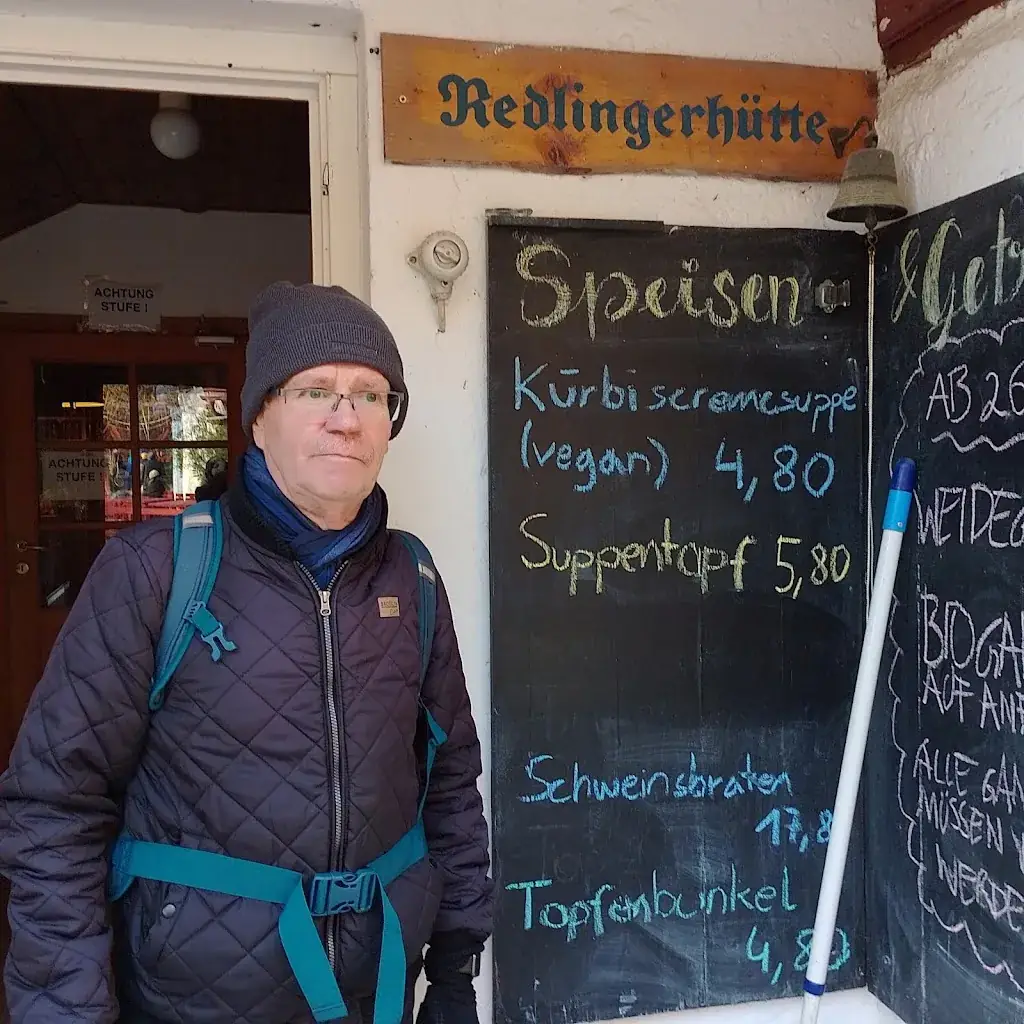 Redlingerhütte
ACHTUNG
STUFE !
ACHTUNG
STUFE !
Speisen
Kürbiscremesuppe
(vegan) 4,80
Suppentopf 5,80
Schweinsbraten
17,8
Topfenbunkel
4,80
& Get
AB 26
WEIDEG
BIOGA
AUF AN
ALLE GAN
MÜSSEN
WERDE